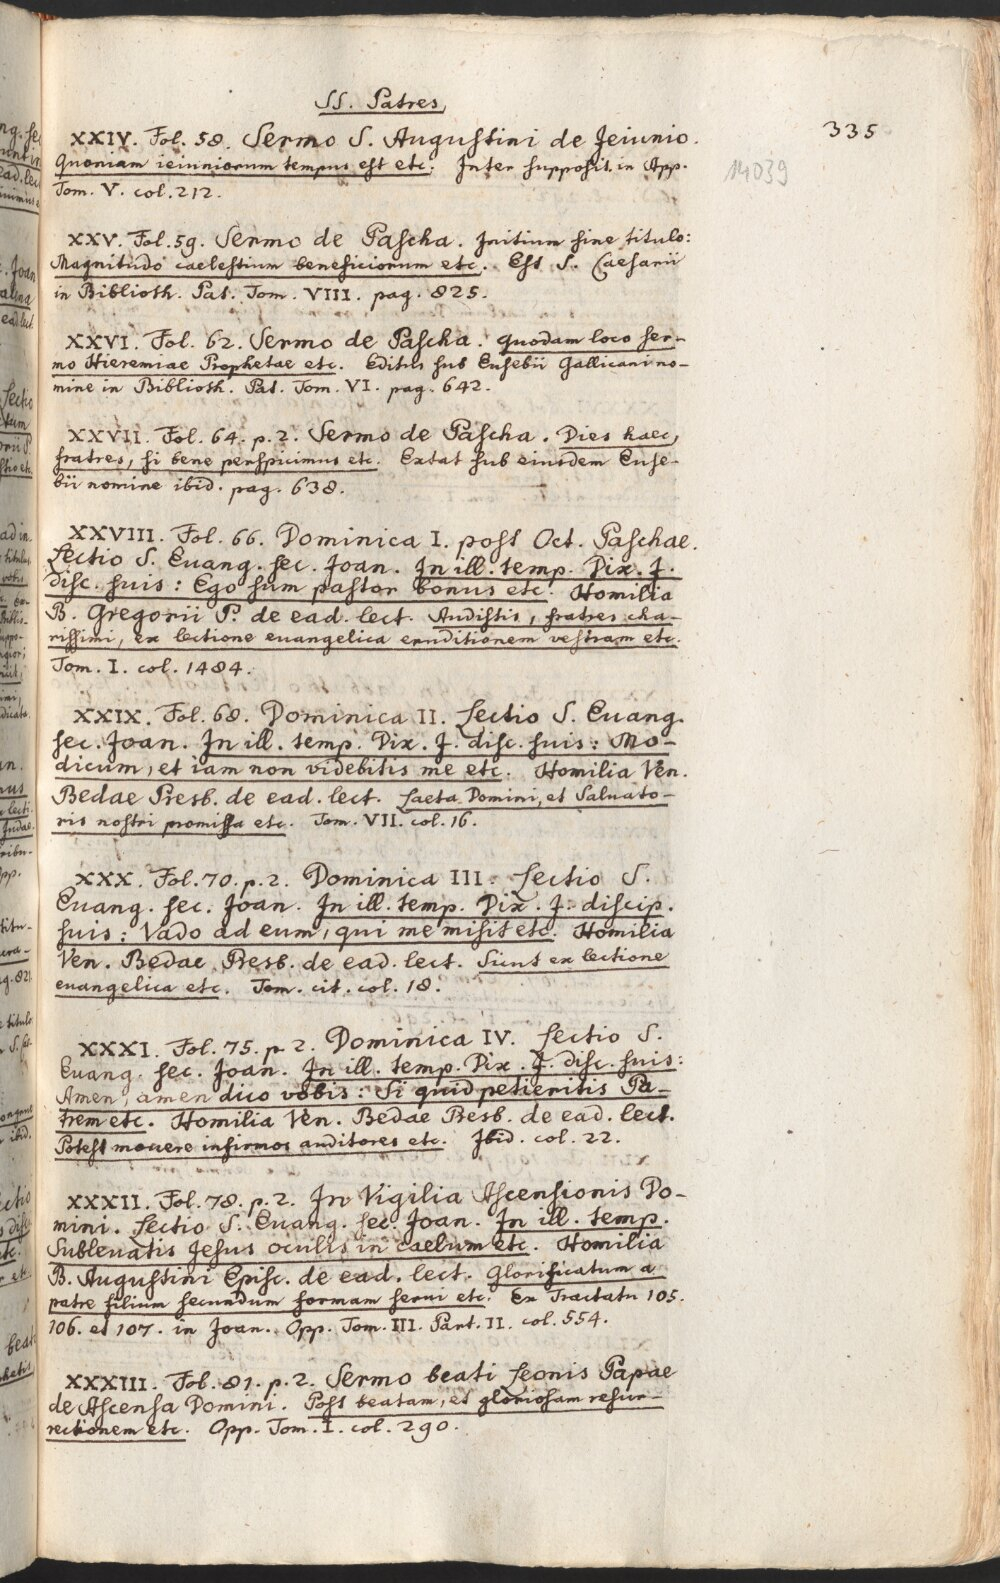 SS. Patres
335
14039
XXIV. Fol. 58. Sermo S. Augustini de Jeiunio.
Quoniam ieiuniorum tempus est etc. Inter supposit. in App.
Tom. V. col. 212.
XXV. Fol. 59. Sermo de Pascha. Initium sine titulo:
Magnitudo caelestium beneficiorum etc. Est S. Caesarii
in Biblioth. Pat. Tom. VIII. pag. 825.
XXVI. Fol. 62. Sermo de Pascha. Quodam loco ser-
mo Hieremiae Prophetae etc. Editus sub Eusebii Gallicani no-
mine in Biblioth. Pat. Tom. VI. pag. 642.
XXVII. Fol. 64. p. 2. Sermo de Pascha. Dies haec,
fratres, si bene perspicimus etc. Extat sub eiusdem Euse-
bii nomine ibid. pag. 638.
XXVIII. Fol. 66. Dominica I. post Oct. Paschae.
Lectio S. Euang. sec. Joan. In ill. temp. Dix. J.
disc. suis: Ego sum pastor bonus etc. Homilia
B. Gregorii P. de ead. lect. Audistis, fratres cha-
rissimi, ex lectione euangelica eruditionem vestram etc.
Tom. I. col. 1484.
XXIX. Fol. 68. Dominica II. Lectio S. Euang.
sec. Joan. In ill. temp. Dix. J. disc. suis: Mo-
dicum, et iam non videbitis me etc. Homilia Ven.
Bedae Presb. de ead. lect. Laeta Domini, et Saluato-
ris nostri promissa etc. Tom. VII. col. 16.
XXX. Fol. 70. p. 2. Dominica III. Lectio S.
Euang. sec. Joan. In ill. temp. Dix. J. discip.
suis: Vado ad eum, qui me misit etc. Homilia
Ven. Bedae Presb. de ead. lect. Sicut ex lectione
euangelica etc. Tom. cit. col. 18.
XXXI. Fol. 75. p. 2. Dominica IV. Lectio S.
Euang. sec. Joan. In ill. temp. Dix. J. disc. suis:
Amen, amen dico vobis: Si quid petieritis Pa-
trem etc. Homilia Ven. Bedae Presb. de ead. lect.
Potest mouere infirmos auditores etc. Ibid. col. 22.
XXXII. Fol. 78. p. 2. In Vigilia Ascensionis Do-
mini. Lectio S. Euang. sec. Joan. In ill. temp.
Subleuatis Jesus oculis in caelum etc. Homilia
B. Augustini Episc. de ead. lect. Glorificatum a
patre filium secundum formam serui etc. Ex Tractatu 105.
106. et 107. in Joan. Opp. Tom. III. Part. II. col. 554.
XXXIII. Fol. 81. p. 2. Sermo beati Leonis Papae
de Ascensa Domini. Post beatam, et gloriosam resur-
rectionem etc. Opp. Tom. I. col. 290.